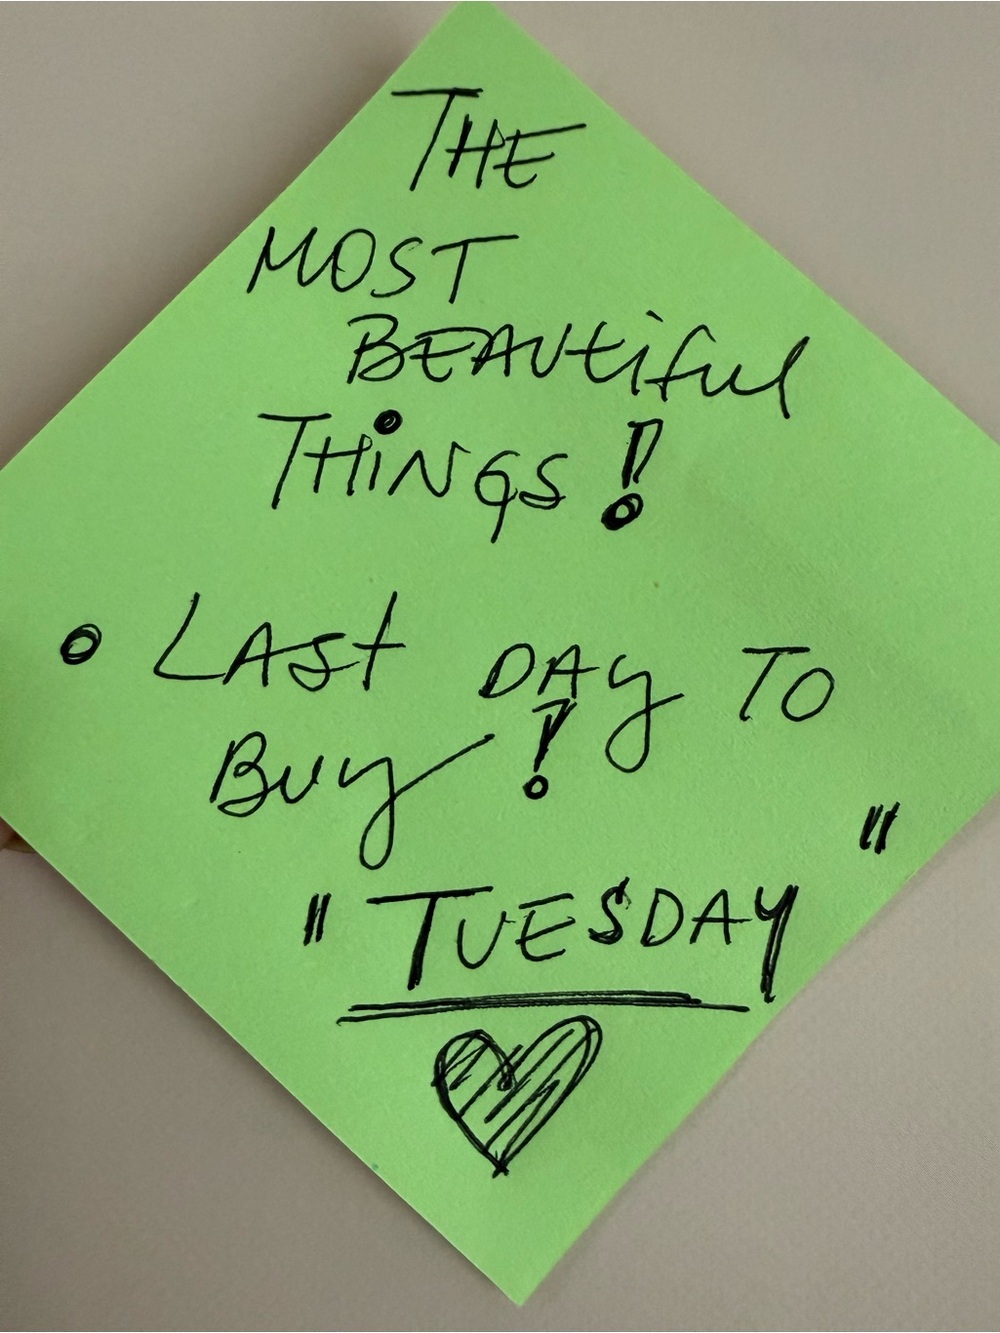 THE
MOST
BEAUtiful
THiNGS!
• LASt DAy TO
Buy!
"TUESDAY"